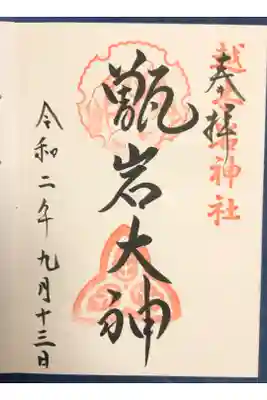 奉拝
越木岩神社
甑岩大神
令和二年九月十三日